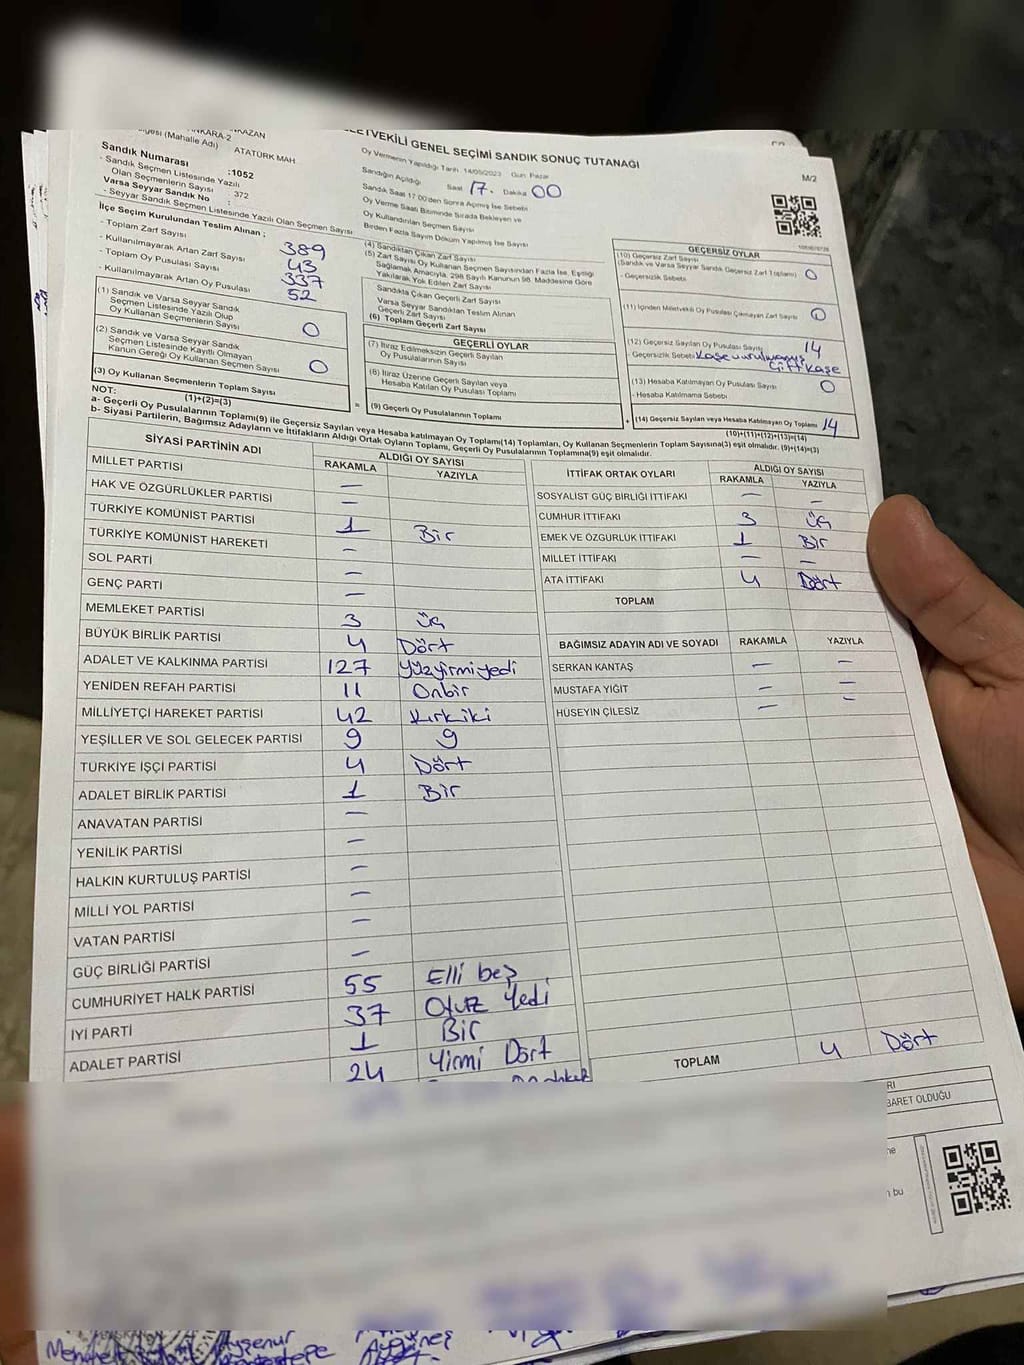 ANKARA-2
KAZAN
(Mahalle Adı) ATATÜRK MAH
Sandık Numarası :1052
- Sandık Seçmen Listesinde Yazılı
Olan Seçmenlerin Sayısı : 372
Varsa Seyyar Sandık No :
- Seyyar Sandık Seçmen Listesinde Yazılı Olan Seçmen Sayısı
İlçe Seçim Kurulundan Teslim Alınan ;
- Toplam Zarf Sayısı 389
- Kullanılmayarak Artan Zarf Sayısı 43
- Toplam Oy Pusulası Sayısı 337
- Kullanılmayarak Artan Oy Pusulası 52
(1) Sandık ve Varsa Seyyar Sandık
Seçmen Listesinde Yazılı Olup
Oy Kullanan Seçmenlerin Sayısı 0
(2) Sandık ve Varsa Seyyar Sandık
Seçmen Listesinde Kayıtlı Olmayan
Kanun Gereği Oy Kullanan Seçmen Sayısı 0
(3) Oy Kullanan Seçmenlerin Toplam Sayısı
(1)+(2)=(3)
ETVEKİLİ GENEL SEÇİMİ SANDIK SONUÇ TUTANAĞI
M/2
Oy Vermenin Yapıldığı Tarih 14/05/2023 Gün Pazar
Sandığın Açıldığı Saat 17. Dakika 00
Sandık Saat 17:00'den Sonra Açılmış İse Sebebi
Oy Verme Saati Bitiminde Sırada Bekleyen ve
Oy Kullandırılan Seçmen Sayısı
Birden Fazla Sayım Döküm Yapılmış İse Sayısı
(4) Sandıktan Çıkan Zarf Sayısı
(5) Zarf Sayısı Oy Kullanan Seçmen Sayısından Fazla İse, Eşitliği
Sağlamak Amacıyla, 298 Sayılı Kanunun 98. Maddesine Göre
Yakılarak Yok Edilen Zarf Sayısı
Sandıkta Çıkan Geçerli Zarf Sayısı
Varsa Seyyar Sandıktan Teslim Alınan
Geçerli Zarf Sayısı
(6) Toplam Geçerli Zarf Sayısı
GEÇERLİ OYLAR
(7) İtiraz Edilmeksizin Geçerli Sayılan
Oy Pusulalarının Sayısı
(8) İtiraz Üzerine Geçerli Sayılan veya
Hesaba Katılan Oy Pusulası Toplamı
= (9) Geçerli Oy Pusulalarının Toplamı
GEÇERSİZ OYLAR
(10) Geçersiz Zarf Sayısı
(Sandık ve Varsa Seyyar Sandık Geçersiz Zarf Toplamı) 0
- Geçersizlik Sebebi
(11) İçinden Milletvekili Oy Pusulası Çıkmayan Zarf Sayısı
(12) Geçersiz Sayılan Oy Pusulası Sayısı 14
- Geçersizlik Sebebi Kaşe vurulmamış
Çift Kaşe
(13) Hesaba Katılmayan Oy Pusulası Sayısı 0
- Hesaba Katılmama Sebebi
+ (14) Geçersiz Sayılan veya Hesaba Katılmayan Oy Toplamı 14
(10)+(11)+(12)+(13)=(14)
NOT:
a- Geçerli Oy Pusulalarının Toplamı(9) ile Geçersiz Sayılan veya Hesaba katılmayan Oy Toplamı(14) Toplamları, Oy Kullanan Seçmenlerin Toplam Sayısına(3) eşit olmalıdır. (9)+(14)=(3)
b- Siyasi Partilerin, Bağımsız Adayların ve İttifakların Aldığı Ortak Oyların Toplamı, Geçerli Oy Pusulalarının Toplamına(9) eşit olmalıdır.
SİYASİ PARTİNİN ADI
ALDIĞI OY SAYISI
RAKAMLA YAZIYLA
MİLLET PARTİSİ —
HAK VE ÖZGÜRLÜKLER PARTİSİ —
TÜRKİYE KOMÜNİST PARTİSİ 1 Bir
TÜRKİYE KOMÜNİST HAREKETİ —
SOL PARTİ —
GENÇ PARTİ —
MEMLEKET PARTİSİ 3 Üç
BÜYÜK BİRLİK PARTİSİ 4 Dört
ADALET VE KALKINMA PARTİSİ 127 Yüzyirmiyedi
YENİDEN REFAH PARTİSİ 11 Onbir
MİLLİYETÇİ HAREKET PARTİSİ 42 Kırkiki
YEŞİLLER VE SOL GELECEK PARTİSİ 9 9
TÜRKİYE İŞÇİ PARTİSİ 4 Dört
ADALET BİRLİK PARTİSİ 1 Bir
ANAVATAN PARTİSİ —
YENİLİK PARTİSİ —
HALKIN KURTULUŞ PARTİSİ —
MİLLİ YOL PARTİSİ —
VATAN PARTİSİ —
GÜÇ BİRLİĞİ PARTİSİ —
CUMHURİYET HALK PARTİSİ 55 Elli beş
İYİ PARTİ 37 Otuz Yedi
ADALET PARTİSİ 1 Bir
24 Yirmi Dört
İTTİFAK ORTAK OYLARI
ALDIĞI OY SAYISI
RAKAMLA YAZIYLA
SOSYALİST GÜÇ BİRLİĞİ İTTİFAKI — —
CUMHUR İTTİFAKI 3 Üç
EMEK VE ÖZGÜRLÜK İTTİFAKI 1 Bir
MİLLET İTTİFAKI — —
ATA İTTİFAKI 4 Dört
TOPLAM
BAĞIMSIZ ADAYIN ADI VE SOYADI RAKAMLA YAZIYLA
SERKAN KANTAŞ — —
MUSTAFA YİĞİT — —
HÜSEYİN ÇİLESİZ — —
TOPLAM 4 Dört
RI
BARET OLDUĞU
ne
bu
Ayşenur